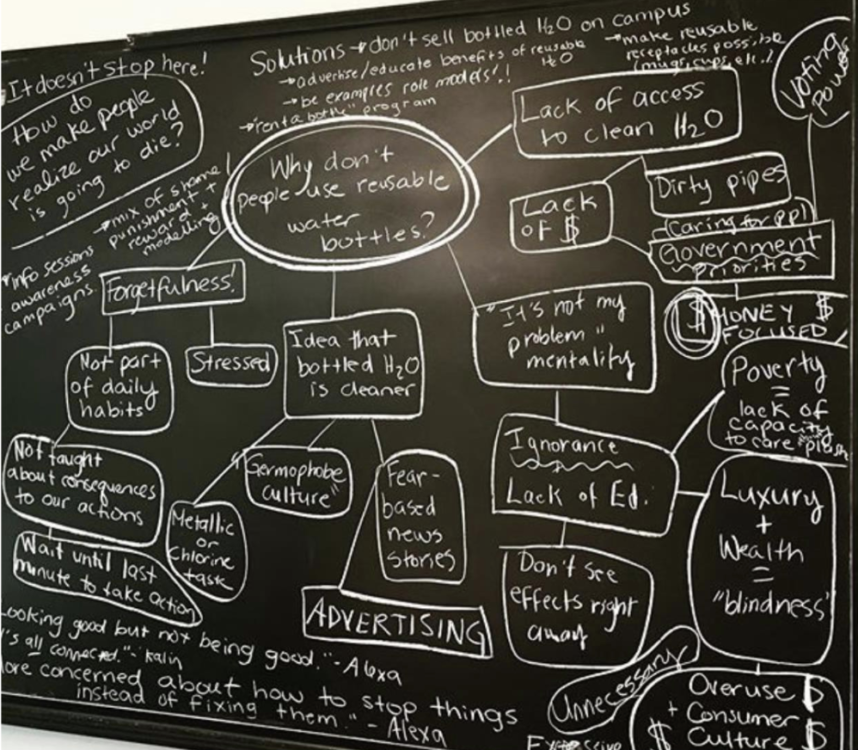 It doesn't stop here!
Solutions → don't sell bottled H2O on campus
→ advertise/educate benefits of reusable
H2O
→ be examples role models!!
→ "rent a bottle" program
→ make reusable
receptacles possible
(mugs, cups, etc.)
Voting
power
How do
we make people
realize our world
is going to die?
→ mix of shame!
punishment +
reward +
modelling
*info sessions
awareness
campaigns.
Why don't
people use reusable
water
bottles?
Lack of access
to clean H2O
Lack
of $
Dirty pipes
(Caring for ppl)
Government
priorities
$ MONEY $
FOCUSED
Forgetfulness!
Not part
of daily
habits
Stressed
Not taught
about consequences
to our actions
Wait until last
minute to take action
Idea that
bottled H2O
is cleaner
Metallic
or
Chlorine
taste
"Germophobe
culture"
Fear-
based
news
stories
ADVERTISING
"It's not my
problem"
mentality
Ignorance
Lack of Ed.
Don't see
effects right
away
Poverty
=
lack of
capacity
to care
Luxury
+
Wealth
=
"blindness"
Unnecessary
Overuse $
+ Consumer
$ Culture $
Looking good but not being good." - Alexa
"It's all connected." - Kalin
More concerned about how to stop things
instead of fixing them." - Alexa